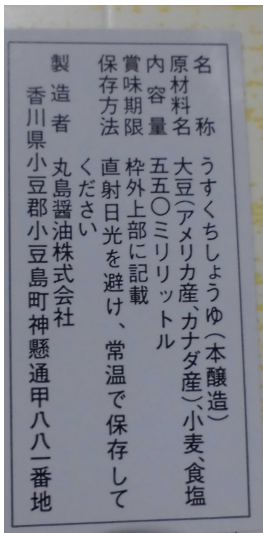 名称 うすくちしょうゆ(本醸造)
原材料名 大豆(アメリカ産、カナダ産)、小麦、食塩
内容量 五五〇ミリリットル
賞味期限 枠外上部に記載
保存方法 直射日光を避け、常温で保存して
ください
製造者 丸島醤油株式会社
香川県小豆郡小豆島町神懸通甲八八一番地